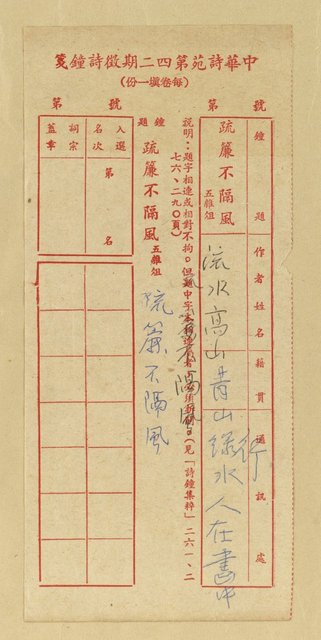 中華詩苑第四二期徵詩鐘箋
(每卷塡一份)
第　號
鐘題
疏簾不隔風
五雜俎
作者姓名籍貫通訊處
流水高山青山綠水人在畫中
行
說明：題字相連或相對不拘。但題中字
(見「詩鐘集粹」二六一、二七六、二九〇頁)
隔風
第　號
鐘題
疏簾不隔風
五雜俎
疏簾不隔風
入選名次
第　名
詞宗蓋章